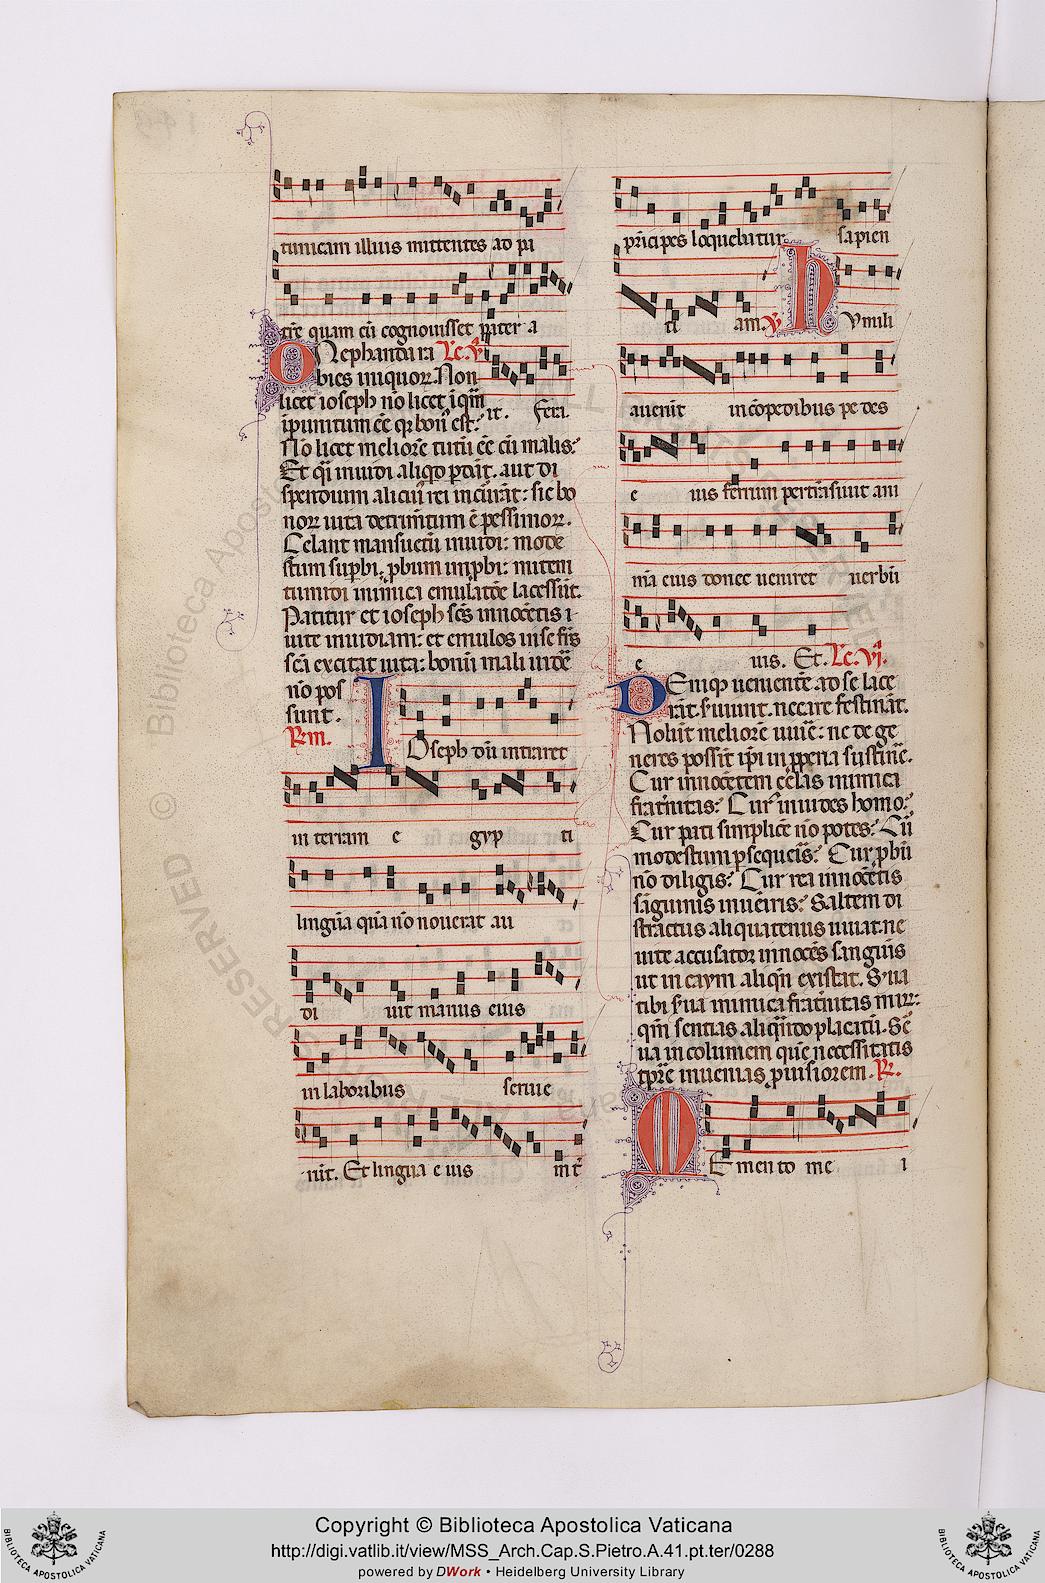 tunicam illius mittentes ad pa
tre quam cū cognouisset pater a
it. Fera.
Nephanda ra Lc. v.
O bies iniquoꝝ. Non
licet ioseph nō licet
No licet meliorē tutū ēē cū malis:
Et inuidi aliqd . aut di
spendium alicui rei : sic bo
noꝝ uita detrimtum ē pessimoꝝ.
Celant mansuetū inuidi: mode
stum supbi. pbum impbi: mitem
tumidi inimica emulatōe lacessūt.
Patitur et ioseph scēs innocētis i
uite inuidiam: et emulos in se frīs
scā excitat uita: bonū mali uidē
nō pos
sunt.
Rm.
I Oseph dū intraret
in terram e gyp ti
linguā quā nō nouerat au
di uit manus eius
in laboribus serue
rūt. Et lingua e ius int
prīcipes loquebatur sapien
ti am. V. H Vmili
auerūt in cōpedibus pe des
e ius ferrum pertrāsiuit ani
mā eius donec ueniret uerbū
e ius. Et. Lc. vi.
D Eniqꝫ uenientē ad se lace
rāt. s uiuunt. necare festināt.
Nolūt meliorē uiuē: ne de ge
neres possīt ipi in ppera sustinē.
Cur innocētem celas inimica
fratnitas? Cur inuides homo?
Cur pati simplicē nō potes? Cū
modestum psequeis? Cur pbū
nō diligis? Cur rea innocētis
sāguinis inueīris? Saltem di
stractus aliquatenus uiuat. ne
uite accusatoꝝ innocēs sanguis
ut in caym aliqn existat. Sua
tibi sua inimica fratnitas
qm sentias aliqndo placatū. Se
ua in columem que necessitatis
tpre inuenias piusiorem. R.
M E men to me i
Copyright © Biblioteca Apostolica Vaticana
http://digi.vatlib.it/view/MSS_Arch.Cap.S.Pietro.A.41.pt.ter/0288
powered by DWork • Heidelberg University Library